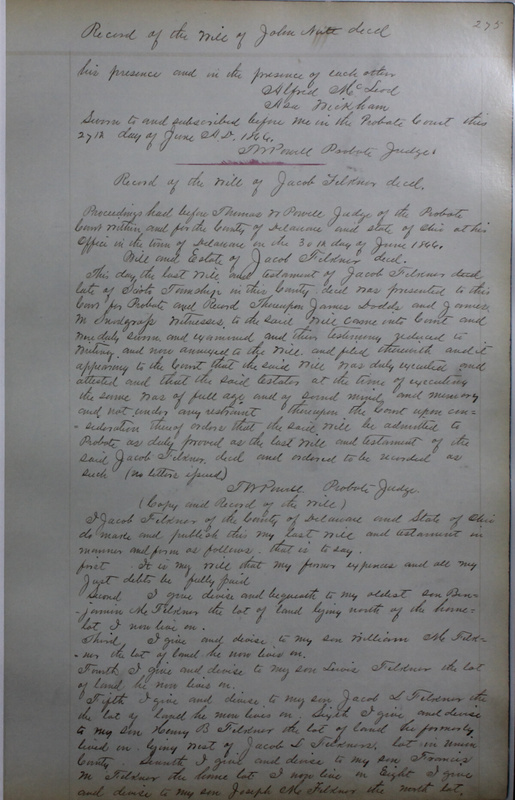 275
Record of the Will of John Nutt decd
his presence and in the presence of each other
Alfred McLeod
Asa Wickham
Sworn to and subscribed before me in the Probate Court this
27th day of June A.D. 1866.
T W Powell Probate Judge
Record of the Will of Jacob Feldner decd.
Proceedings had before Thomas W Powell Judge of the Probate
Court within and for the County of Delaware and state of Ohio at his
Office in the town of Delaware on the 30th day of June 1866.
Will and Estate of Jacob Feldner decd.
This day the last Will and testament of Jacob Feldner decd
late of Scioto Township in this County decd was presented to this
Court for Probate and Record Thereupon James Dodds and James
M Snodgrass Witnesses to the said Will came into Court and
were duly sworn and examined and their testimony reduced to
writing and now annexed to the Will and filed therewith and it
appearing to the Court that the said Will was duly executed and
attested and that the said testator at the time of executing
the same was of full age and of sound mind and memory
and not under any restraint thereupon the Court upon con=
=sideration thereof orders that the said Will be admitted to
Probate as duly proved as the last Will and testament of the
said Jacob Feldner decd and ordered to be recorded as
such (no letters issued)
T W Powell Probate Judge.
(Copy and Record of the Will)
I Jacob Feldner of the County of Delaware and State of Ohio
do make and publish this my last Will and testament in
manner and form as follows. that is to say.
first It is my Will that my funeral expences and all my
Just debts be fully paid
Second I give devise and bequeath to my oldest son Ben=
=jamin M Feldner the lot of land lying north of the home=
lot I now live on.
Third, I give and devise to my son William M Feld=
=ner the lot of land he now lives on.
Fourth I give and devise to my son Lewis Feldner the lot
of land he now lives on.
Fifth I give and devise to my son Jacob L Feldner the
the lot of land he now lives on Sixth I give and devise
to my son Henry B Feldner the lot of land he formerly
lived on lying West of Jacob L Feldners lot in Union
County. Seventh I give and devise to my son Francis
M Feldner the home lot I now live on Eight I give
and devise to my son Joseph M Feldner the north lot,